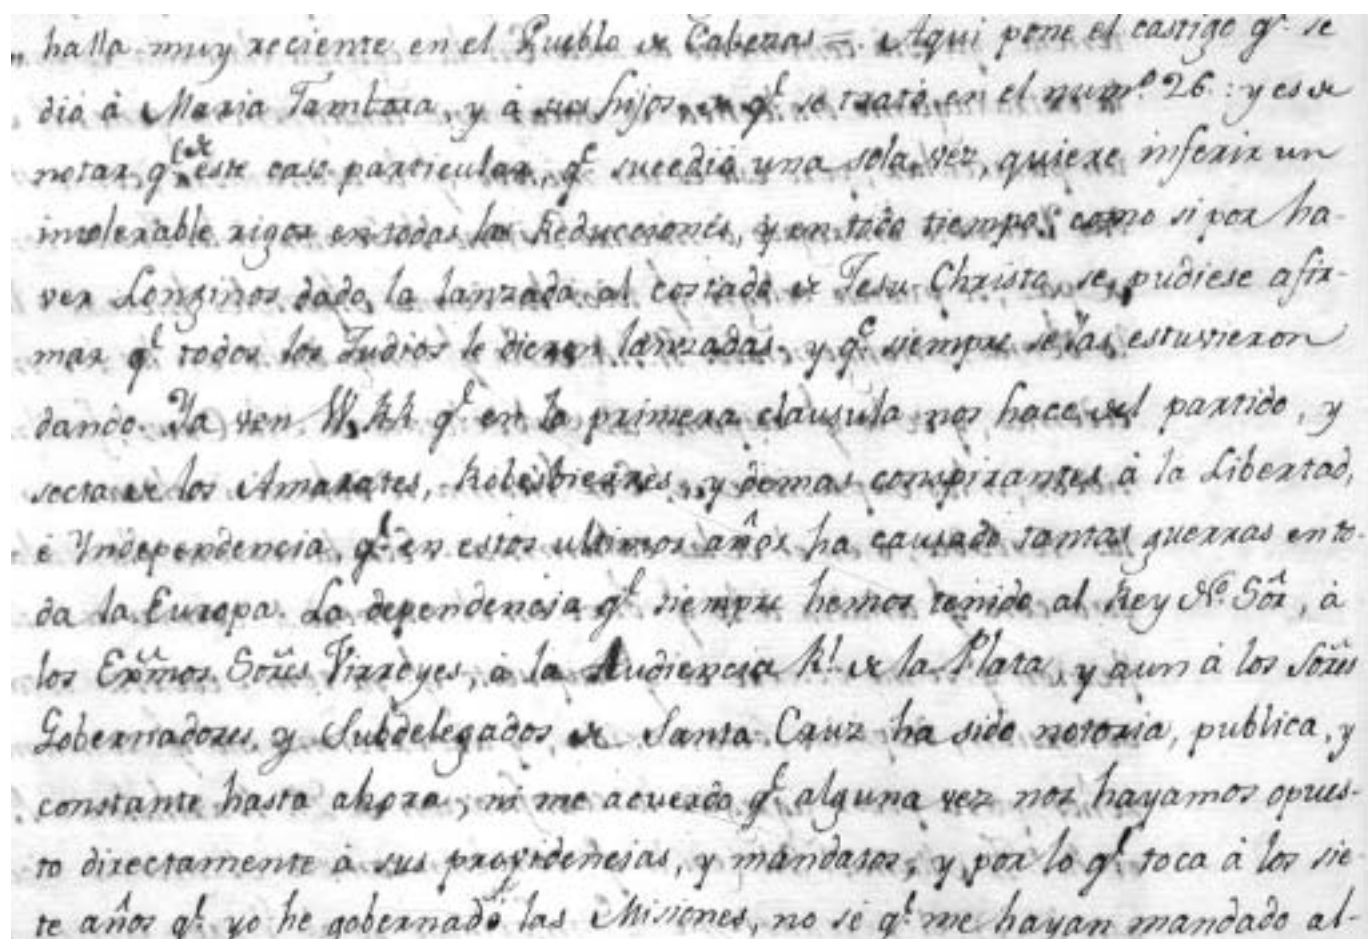 „ halla muy reciente en el Pueblo de Cabezas =. Aqui pone el castigo q.e se
dió á Maria Tambora, y á sus hijos, de q.e se trató en el num.o 26 : y es de
notar, q.e de este caso particular, q.e sucedió una sola vez, quiere inferir un
intolerable rigor en todas las Reducciones, y en todo tiempo; como si por ha-
ver Longinos dado la lanzada al costado de Jesu-Christo, se pudiese afir-
mar q.e todos los Judios le dieron lanzadas, y q.e siempre se las estuvieron
dando. Ya ven VV. RR. q.e en la primera clausula nos hace del partido, y
secta de los Amarates, Robesbierres, y demas conspirantes á la Libertad,
é Yndependencia, q.e en estos ultimos años ha causado tantas guerras en to-
da la Europa. La dependencia q.e siempre hemos tenido al Rey N.o Sōr, á
los Exm̃os Sōres Virreyes, á la Audiencia R.l de la Plata, y aun á los Sōres
Gobernadores, y Subdelegados de Santa Cruz ha sido notoria, publica, y
constante hasta ahora; ni me acuerdo q.e alguna vez nos hayamos opues-
to directamente á sus providencias, y mandatos; y por lo q.e toca á los sie-
te años q.e yo he gobernado las Misiones, no sé q.e me hayan mandado al-